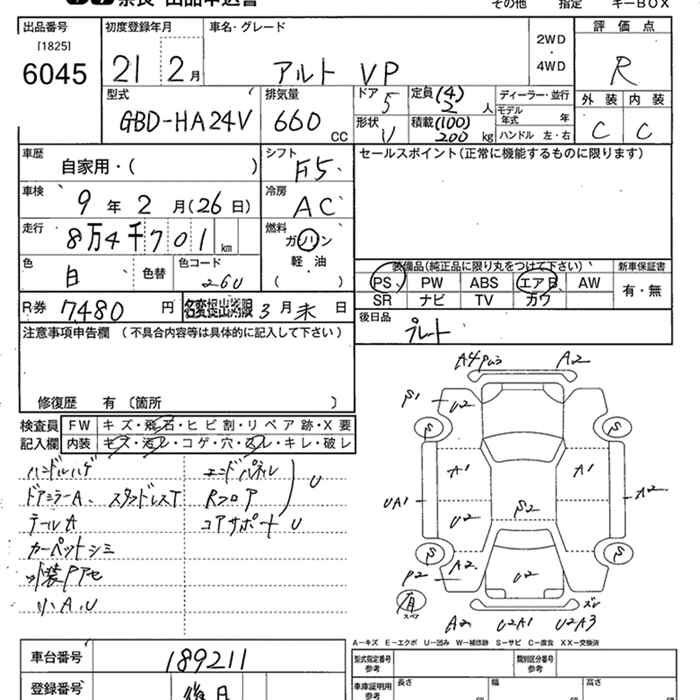 その他 指定 キーBOX
出品番号 [1825] 6045
初度登録年月 21 2月
車名・グレード アルト VP
2WD・4WD
評価点 R
外装 内装 C C
型式 GBD-HA24V
排気量 660 CC
ドア 5
形状 V
定員 (4) 2 人
積載 (100) 200 kg
ディーラー・並行
モデル年式 年
ハンドル 左・右
車歴 自家用・( )
シフト F5
セールスポイント(正常に機能するものに限ります)
車検 9年 2月 (26日)
冷房 AC
走行 8万4千701 km
燃料 ガソリン 軽・油 ( )
色 白 色替 色コード 26U
装備品(純正品に限り丸をつけて下さい) 新車保証書
PS PW ABS エアB AW 有・無
SR ナビ TV カワ
R券 7480 円 名変提出期限 3月末日
後日品 プレート
注意事項申告欄 (不具合内容等は具体的に記入して下さい)
修復歴 有 〔箇所 〕
検査員記入欄
FW キズ・飛石・ヒビ割・リペア跡・X要
内装 キズ・汚レ・コゲ・穴・スレ・キレ・破レ
ハンドルハゲ エンドパネル
ドアミラーA、スタッドレスT Rフロア U
テールA コアサポートU
カーペットシミ
外装Pアセ
小A.U
A2
S1 U2
S S
A1 A1
UA1 A2
U2 S2
S S
P2 A2 U2
有 スペア
A2 U2A1 U2A3
A−キズ E−エクボ U−凹み W−補修跡 S−サビ C−腐食 XX−交換済
車台番号 189211
登録番号 後日
型式指定番号 参考 類別区分番号 参考
車庫証明用 参考 長さ 幅 高さ